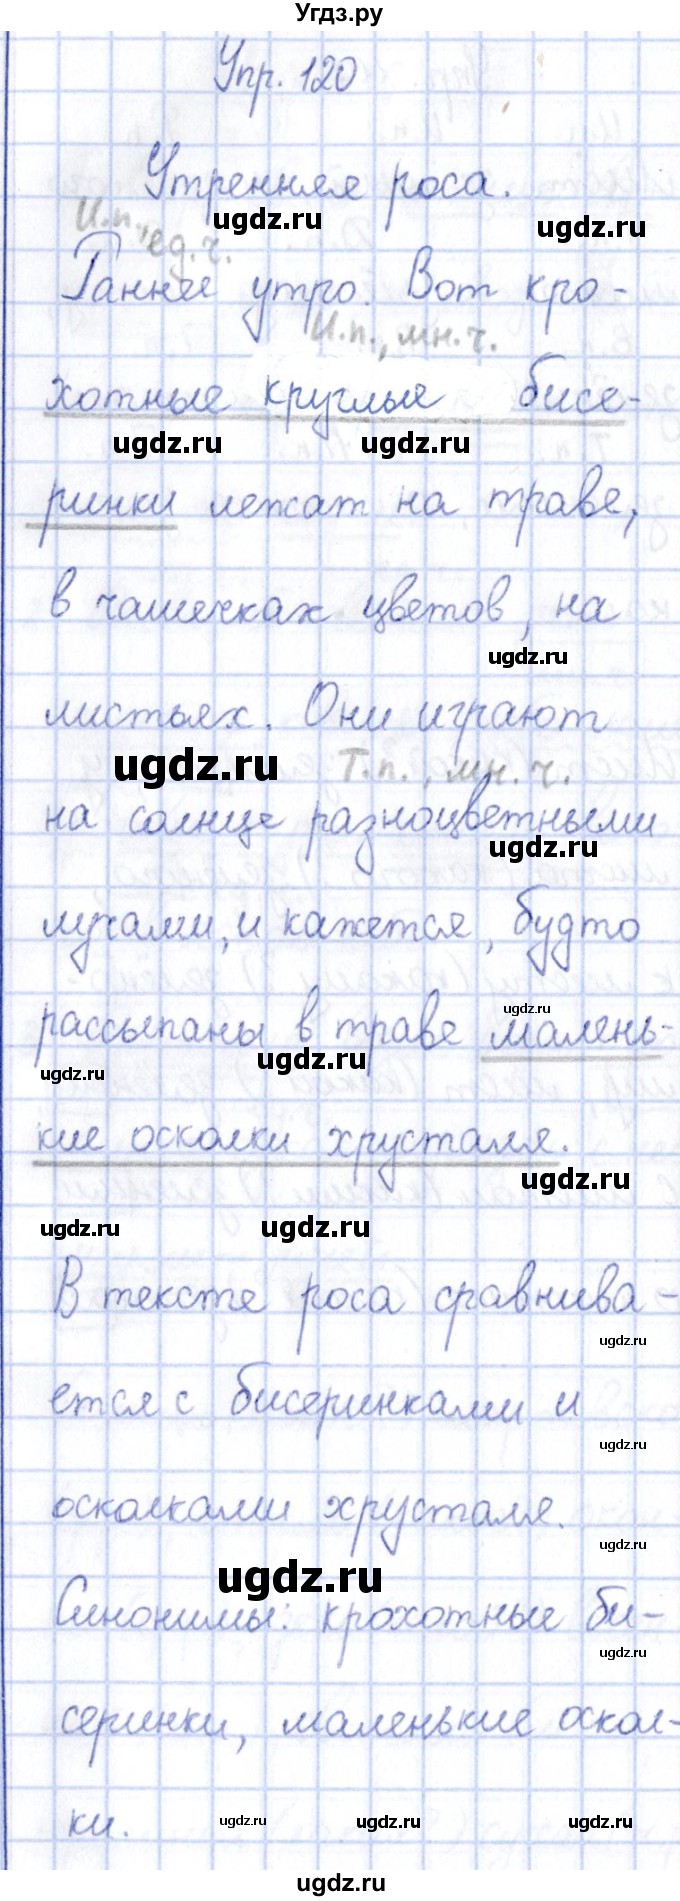 Угдз.ру
Упр. 120
Утренняя роса.
ugdz.ru
ugdz.ru
И.п., ед.ч.
Раннее утро. Вот кро-
И.п., мн.ч.
хотные круглые бисе-
ugdz.ru
ugdz.ru
ринки лежат на траве,
в чашечках цветов, на
ugdz.ru
листьях. Они играют
ugdz.ru
Т.п., мн.ч.
на солнце разноцветными
ugdz.ru
лучами, и кажется, будто
ugdz.ru
рассыпаны в траве малень-
ugdz.ru
ugdz.ru
кие осколки хрусталя.
ugdz.ru
ugdz.ru
ugdz.ru
В тексте роса сравнива-
ugdz.ru
ется с бисеринками и
ugdz.ru
осколками хрусталя.
ugdz.ru
ugdz.ru
Синонимы: крохотные би-
ugdz.ru
серинки, маленькие оскол-
ки.
ugdz.ru
ugdz.ru
ugdz.ru
ugdz.ru